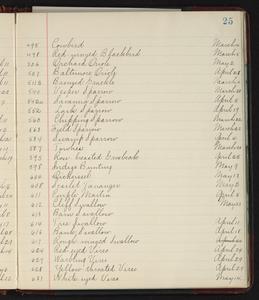 25
495 Cowbird March
498 Red winged Blackbird March
506 Orchard Oriole May 2
507 Baltimore Oriole April 28
511b Bronzed Grackle March
540 Vesper Sparrow March
542a Savanna Sparrow April
552 Lark Sparrow April
560 Chipping Sparrow March 22
563 Field Sparrow March
584 Swamp Sparrow April
587 Towhee March
595 Rose breasted Grosbeak April 28
598 Indigo Bunting May 9
604 Dickcissel May 13
608 Scarlet Tanager May 2
611 Purple Martin April
612 Cliff Swallow May
613 Barn Swallow
614 Tree Swallow April 11
616 Bank Swallow April
617 Rough winged Swallow
624 Red eyed Vireo April
627 Warbling Vireo April 29
628 Yellow throated Vireo April 29
631 White eyed Vireo May